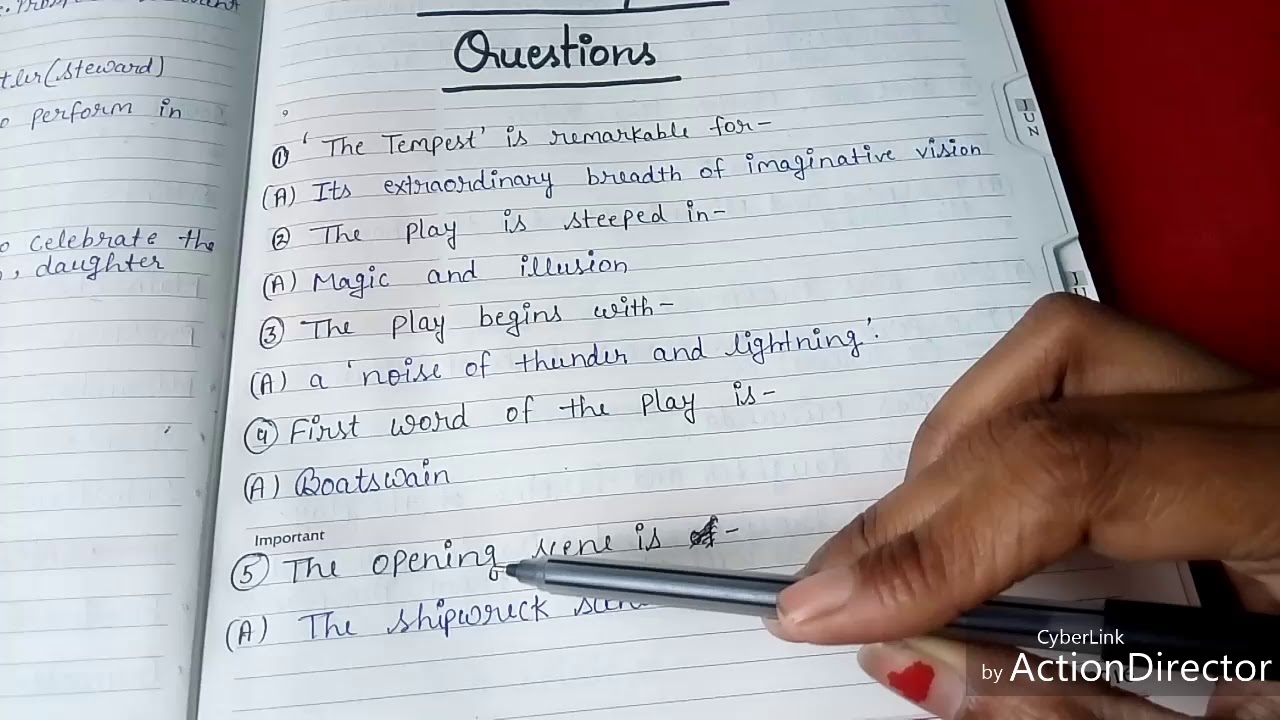 tler (steward)
perform in
celebrate the
, daughter
Questions
① 'The Tempest' is remarkable for-
(A) Its extraordinary breadth of imaginative vision
② The play is steeped in-
(A) Magic and illusion
③ The play begins with-
(A) a 'noise of thunder and lightning'.
④ First word of the play is-
(A) Boatswain
Important
⑤ The opening scene is -
(A) The shipwreck
JUN
CyberLink
by ActionDirector